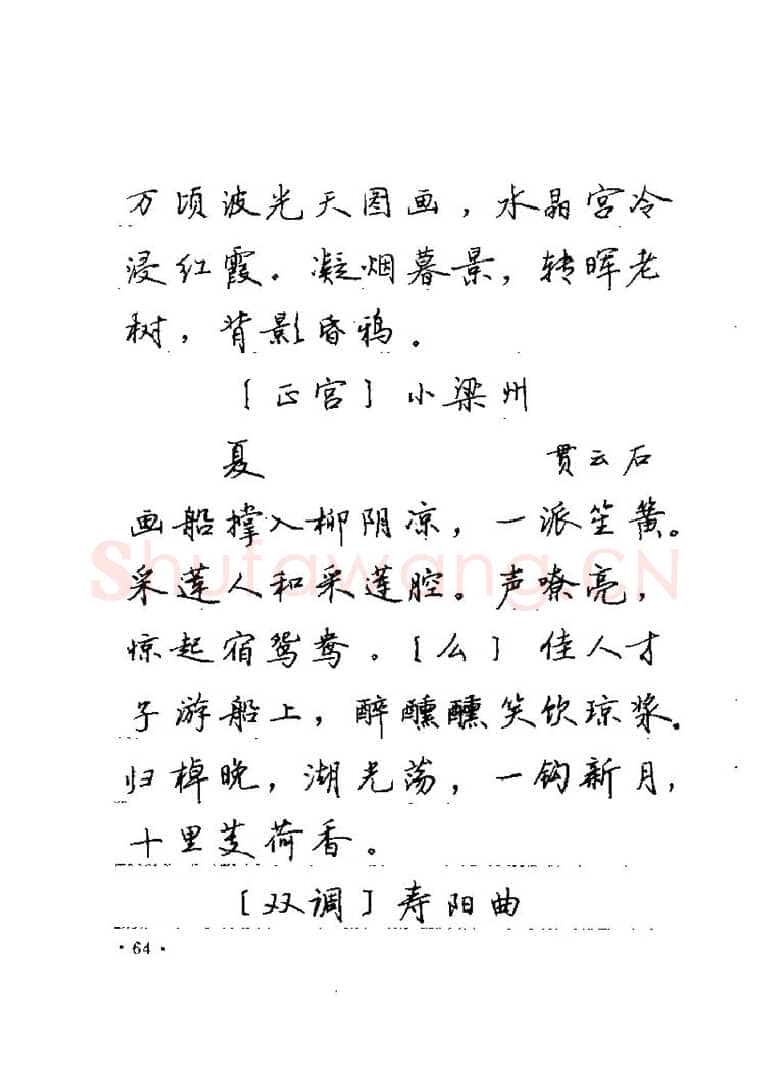 万顷波光天图画，水晶宫冷
浸红霞。凝烟暮景，转晖老
树，背影昏鸦。
［正宫］小梁州
夏　贯云石
画船撑入柳阴凉，一派笙簧。
采莲人和采莲腔。声嘹亮，
惊起宿鸳鸯。［么］佳人才
子游船上，醉醺醺笑饮琼浆。
归棹晚，湖光荡，一钩新月，
十里芰荷香。
［双调］寿阳曲
·64·
Shufawang.CN